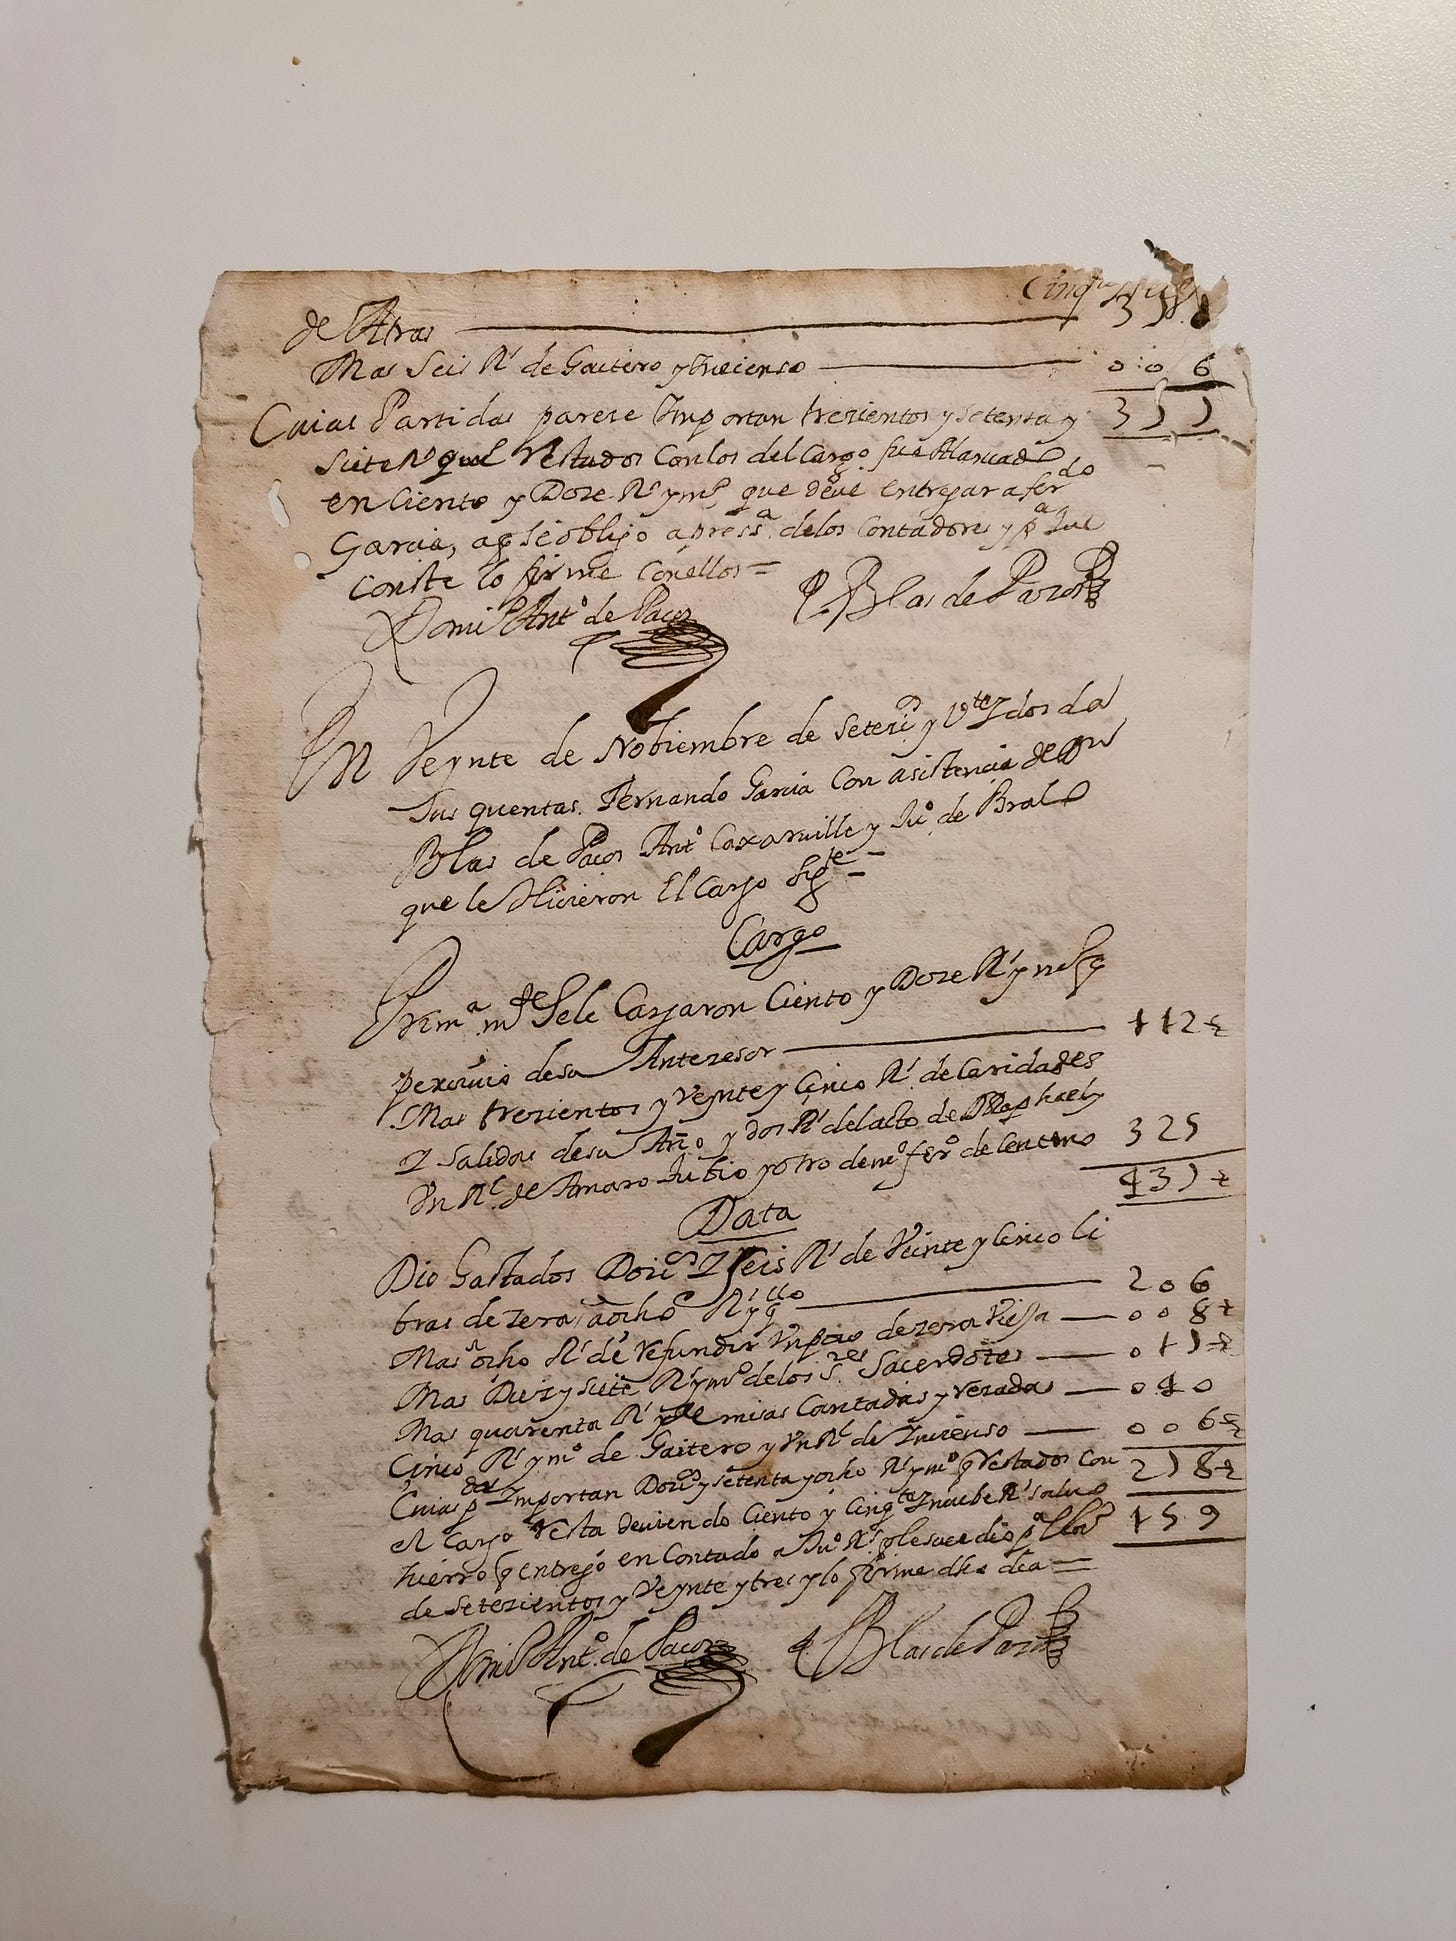 Cinq.ta
de Atras 3
Mas Seis Rs de Gaitero y Yncienso 006
Cuias Partidas parece Ymportan trezientos y setenta y 377
siete Rs que Restados Con los del Cargo fue
en Ciento y Doze Rs y mo que deve entregar a fer.do
Garcia, a q se obligo a press.a de los Contadores y p.a que
Conste lo firme Con ellos =
Domi.o Ant.o de Pazos Blas de Pazos
En Veynte de Nobiembre de Setezi.os y V.te Y dos da
Sus quentas Fernando Garcia Con asistencia de
Blas de Pazos Ant.o Caxaraville y Ju.o de Bral
que le Hizieron El Cargo Sig.te =
Cargo
Prim.a m.te Se le Cargaron Ciento y Doze Rs y m.o q
perzivio de su Antezesor 112½
Mas trezientos y Veynte y Cinco Rs de Caridades
Y Salidas de su Año y dos Rs del acto de Raphael y 325
Un Rl de Amaro Jubio y otro de m.o fer.o de Centeno
437½
Data
Dio Gastados Dozi.os Y seis Rs de Veinte y Cinco li
bras de zera a ocho Rs y q.llo 206
Mas ocho Rs de Refundir Un de zera Vieja 008½
Mas Diez y Siete Rs y m.o de los S.res Sacerdotes 017½
Mas quarenta Rs de misas Cantadas y rezadas 040
Cinco Rs y m.o de Gaitero y Un Rl de Yncienso 006½
Cuias p.das Ymportan Dozi.os y setenta y ocho Rs y m.o q Restados Con 278½
el Cargo Resta deviendo Ciento y Cinq.ta Y nuebe Rs salvo 159
hierro q entrego en Contado a Ju.o q le sucedio p.a el
de Setezientos y Veynte y tres y lo firme dho dia =
Domi.o Ant.o de Pazos Blas de Pazos